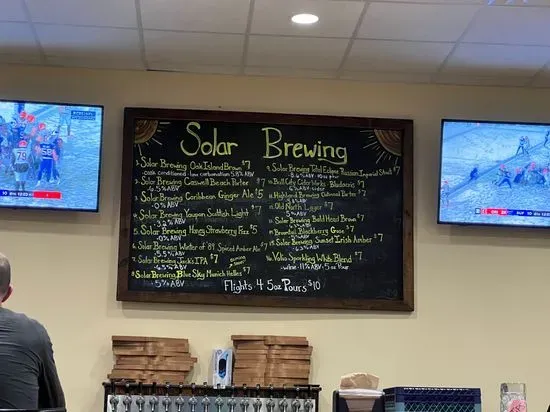 Solar Brewing
1. Solar Brewing Oak Island Brown $7
cask conditioned - low carbonation 5.8% ABV
2. Solar Brewing Caswell Beach Porter $7
6.5% ABV
3. Solar Brewing Caribbean Ginger Ale $5
0% ABV
4. Solar Brewing Yaupon Scottish Light $7
3.2% ABV
5. Solar Brewing Honey Strawberry Fizz $5
0% ABV
6. Solar Brewing Winter of 89 Spiced Amber Ale $7
5.5% ABV
7. Solar Brewing Jack's IPA $7
6.5% ABV
8. Solar Brewing Blue Sky Munich Helles $7
5% ABV
9. Solar Brewing Total Eclipse Russian Imperial Stout $7
10. Bull City Ciderworks - $7
11. Highland Brewing Oatmeal Porter $7
12. Old North Lager $7
5% ABV
13. Solar Brewing Bald Head Brown $7
14. Brambil Blackberry Gose $7
15. Solar Brewing Sunset Irish Amber $7
16. Voko Sparkling White Blend $7
wine - 11% ABV - 5oz Pour
Flights 4 5oz Pours $10